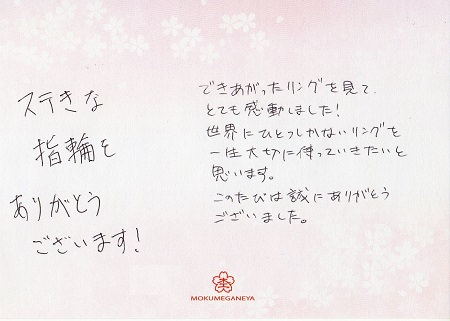 ステきな
指輪を
ありがとう
ございます!
できあがったリングを見て、
とても感動しました!
世界にひとつしかないリングを
一生大切に待っていきたいと
思います。
このたびは誠にありがとう
ございました。
MOKUMEGANEYA